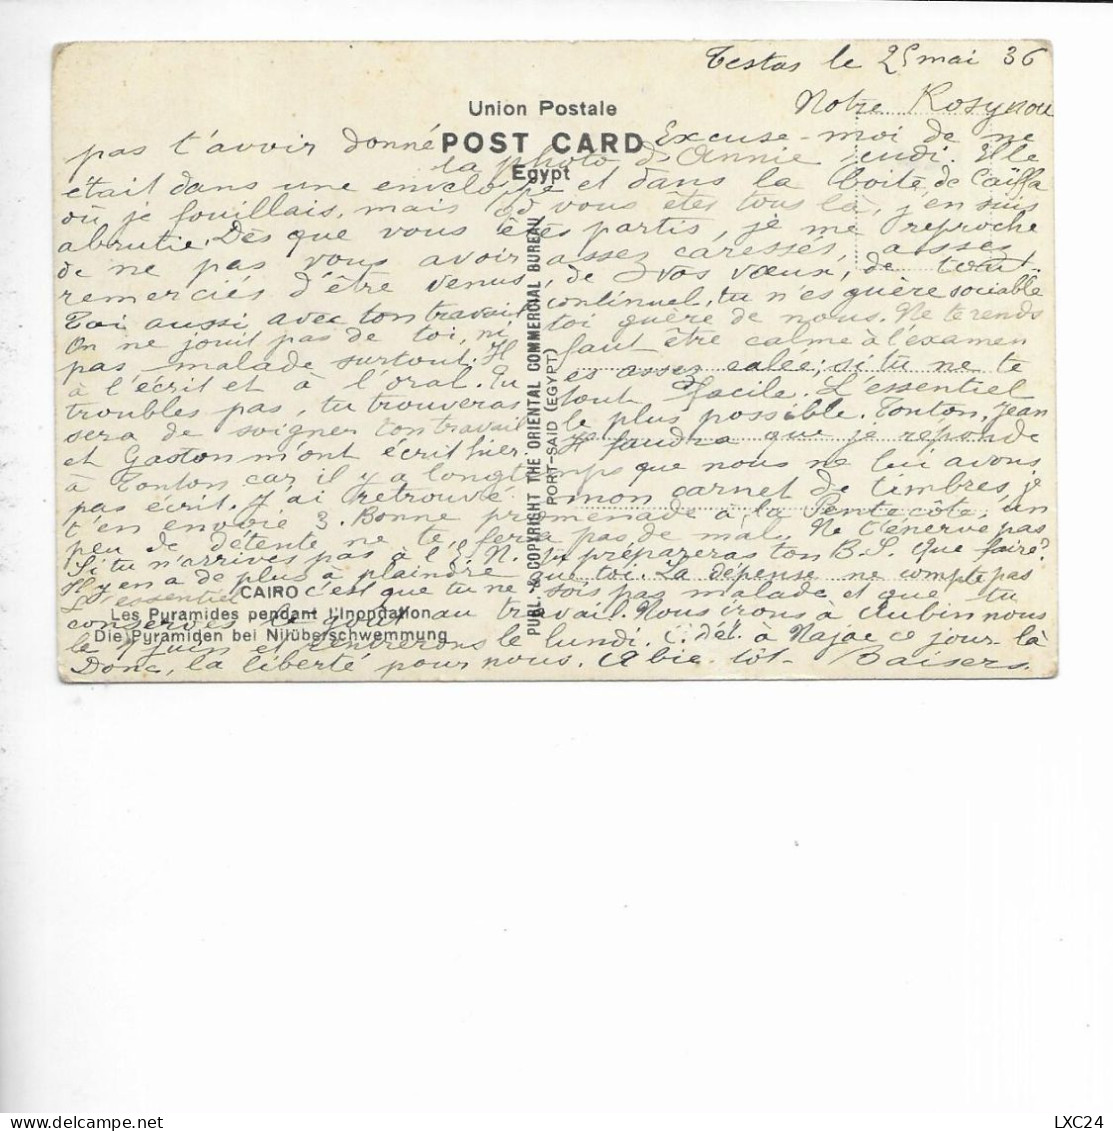 Testas le 25 mai 36
Notre Rosynou
Union Postale
POST CARD
Egypt
Excuse-moi de ne
pas t'avoir donné la photo d'Annie jeudi. Elle
était dans une enveloppe et dans la boite de Caïffa
ou je fouillais, mais qd vous êtes tous là, j'en suis
abrutie. Dès que vous êtes partis, je me reproche
de ne pas vous avoir assez caressés, assez
remerciés d'être venus, de vos vœux, de tout.
Toi aussi, avec ton travail continuel, tu n'es guère sociable
On ne jouit pas de toi, ni toi guère de nous. Ne te rends
pas malade surtout. Il faut être calme à l'examen
à l'écrit et à l'oral. Tu es assez calée; si tu ne te
troubles pas, tu trouveras tout facile. L'essentiel
sera de soigner ton travail le plus possible. Tonton Jean
et Gaston m'ont écrit hier. Il faudra que je réponde
à Tonton car il y a longtemps que nous ne lui avons
pas écrit. J'ai retrouvé mon carnet de timbres, je
t'en envoie 3. Bonne promenade à la Pentecôte, un
peu de détente ne te fera pas de mal. Ne t'énerve pas
Si tu n'arrives pas à l'E. N. tu prépareras ton B.S. Que faire?
Il y en a de plus à plaindre que toi. La dépense ne compte pas
L'essentiel c'est que tu ne sois pas malade et que tu
conserves le goût au travail. Nous irons à Aubin nous
le 1 juin et rentrerons le lundi. C. dél. à Najac ce jour-là
Donc, la liberté pour nous. A bientôt - Baisers.
CAIRO
Les Pyramides pendant l'Inondation
Die Pyramiden bei Nilüberschwemmung
PUBL. & COPYRIGHT THE ORIENTAL COMMERCIAL BUREAU
PORT-SAID (EGYPT)
LXC24